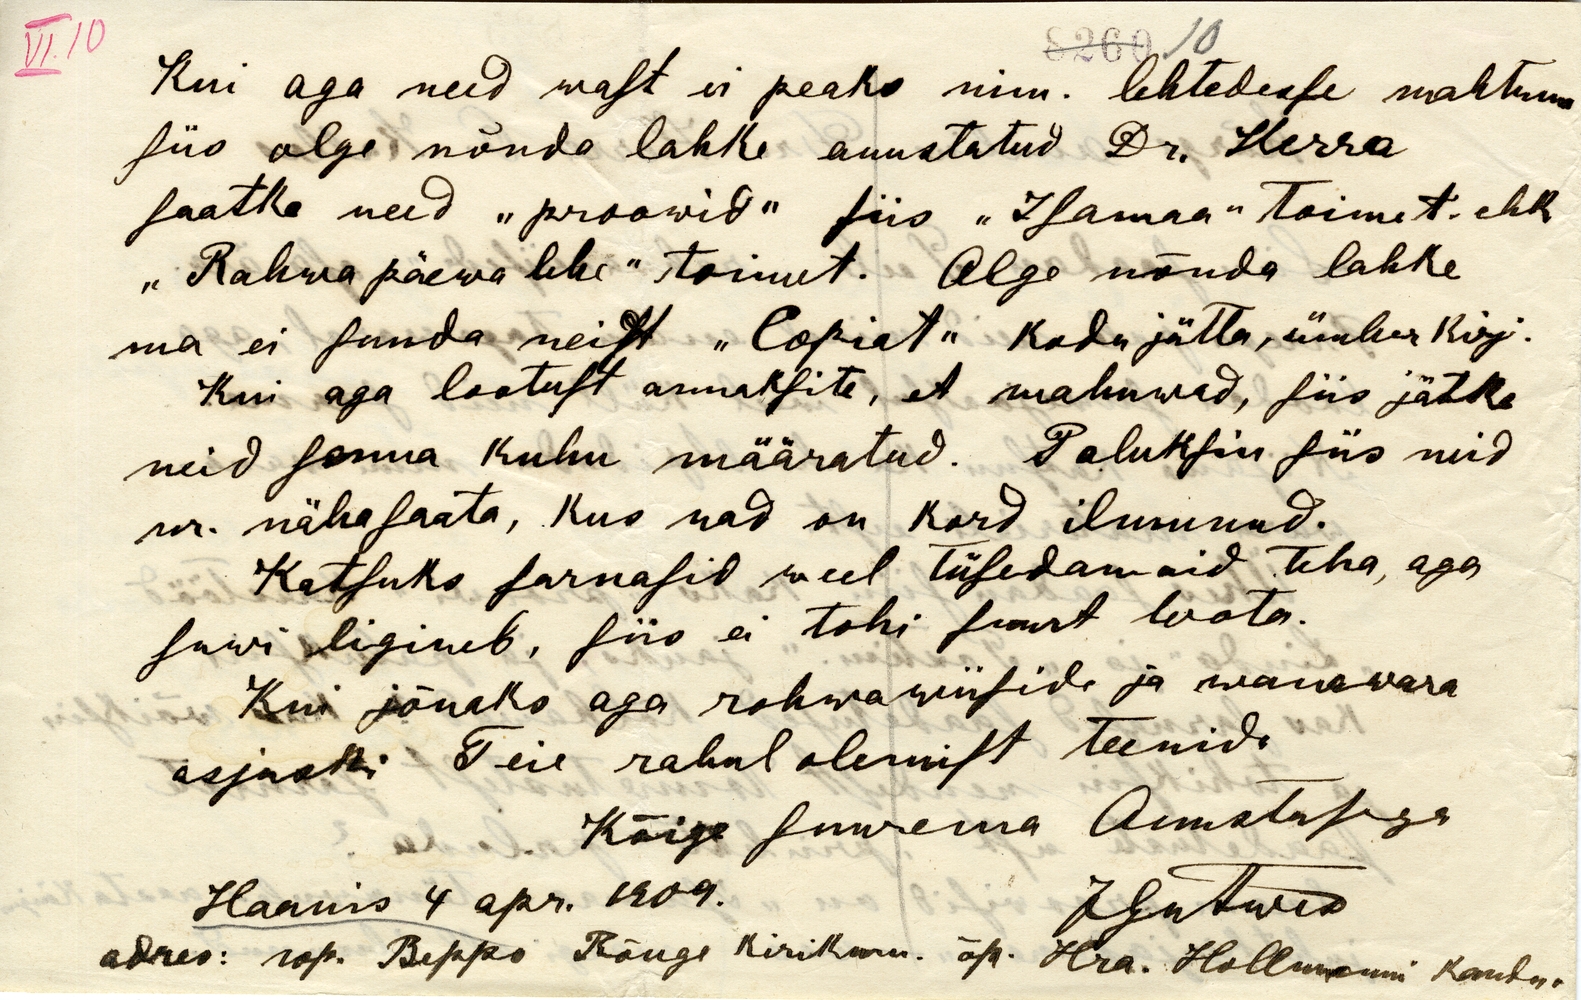 VI.10
8260 10
Kui aga need wast ei peaks nim. lehtedesse mahtuma
siis olge nõnda lahke auustatud Dr. Herra
saatke need „proowid" siis „Isamaa" toimet. ehk
„Rahwa päewa lehe" toimet. Olge nõnda lahke
ma ei suuda neist „Copiat" kodu jätta, ümber kirj.
Kui aga lootust annaksite, et mahuwad, siis jätke
neid senna kuhu määratud. Paluksin siis neid
nr. näha saata, kus nad on kord ilmunud.
Katsuks sarnasid weel tüsedamaid teha, aga
suwi ligineb, siis ei tohi suurt loota.
Kui jõuaks aga rahwawiiside ja wanawara
asjuski Teie rahul olemist teenida
Kõige suurema Auustusega
Haanis 4 apr. 1909.
adres: rop. Beppo Rõuge kirikum. õp. Hra. Hollmanni kaudu.